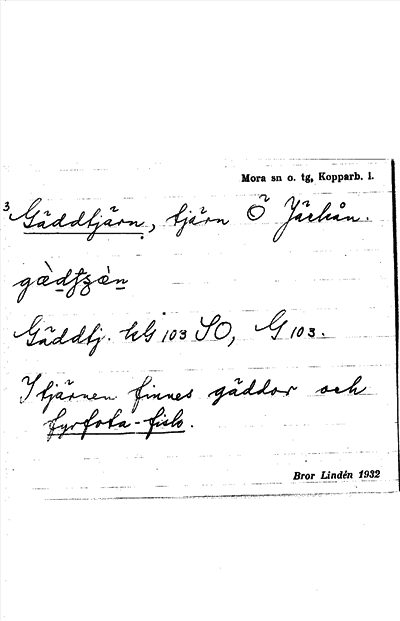 Mora sn o. tg, Kopparb. l.
3 Gäddtjärn, tjärn Ö Järkån.
Gäddtj. kG 103 SO, G 103.
I tjärnen finnes gäddor och
fyrfota-fisk.
Bror Lindén 1932